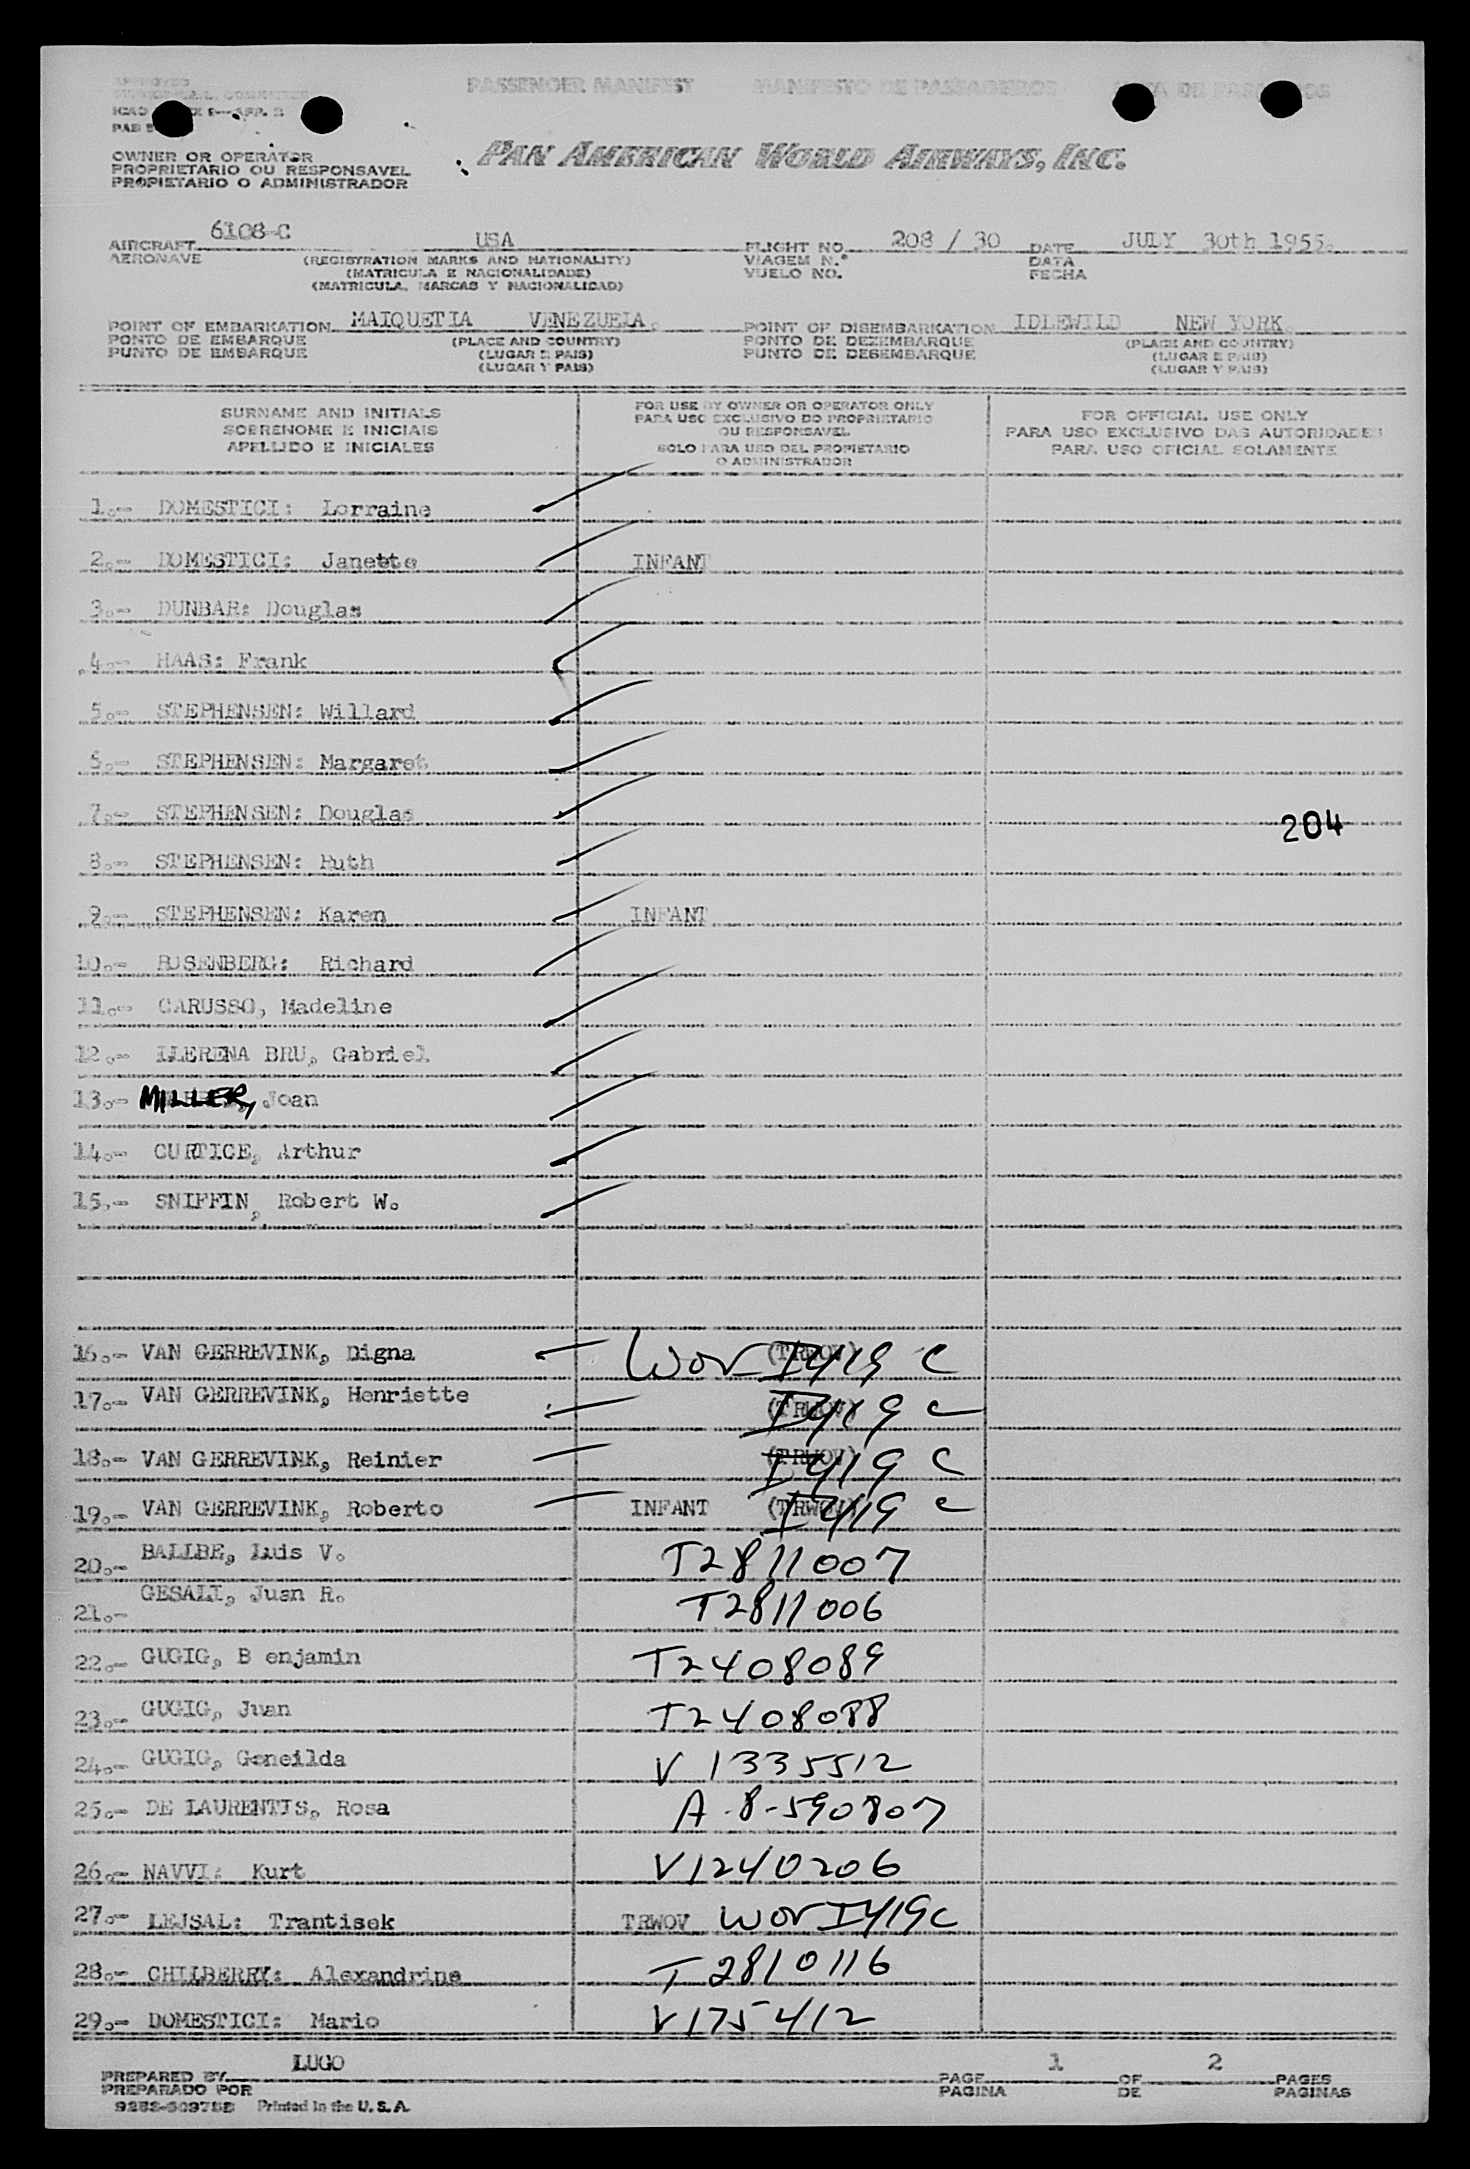 APPROVED
PASSENGER MANIFEST MANIFESTO DE PASSAGEIROS LISTA DE PASAJEROS
PAN AMERICAN WORLD AIRWAYS, INC.
OWNER OR OPERATOR
PROPRIETARIO OU RESPONSAVEL
PROPIETARIO O ADMINISTRADOR
AIRCRAFT 6108-C USA FLIGHT NO. 208 / 30 DATE JULY 30th 1955.
AERONAVE (REGISTRATION MARKS AND NATIONALITY) VIAGEM N.º DATA
(MATRICULA E NACIONALIDADE) VUELO NO. FECHA
(MATRICULA, MARCAS Y NACIONALIDAD)
POINT OF EMBARKATION MAIQUETIA VENEZUELA. POINT OF DISEMBARKATION IDLEWILD NEW YORK.
PONTO DE EMBARQUE (PLACE AND COUNTRY) PONTO DE DEZEMBARQUE (PLACE AND COUNTRY)
PUNTO DE EMBARQUE (LUGAR E PAIS) PUNTO DE DESEMBARQUE (LUGAR E PAIS)
(LUGAR Y PAIS) (LUGAR Y PAIS)
SURNAME AND INITIALS
SOBRENOME E INICIAIS
APELLIDO E INICIALES
FOR USE BY OWNER OR OPERATOR ONLY
PARA USO EXCLUSIVO DO PROPRIETARIO
OU RESPONSAVEL
SOLO PARA USO DEL PROPIETARIO
O ADMINISTRADOR
FOR OFFICIAL USE ONLY
PARA USO EXCLUSIVO DAS AUTORIDADES
PARA USO OFICIAL SOLAMENTE
1.- DOMESTICI: Lorraine
2.- DOMESTICI: Janette INFANT
3.- DUNBAR: Douglas
4.- HAAS: Frank
5.- STEPHENSEN: Willard
6.- STEPHENSEN: Margaret
7.- STEPHENSEN: Douglas
204
8.- STEPHENSEN: Ruth
9.- STEPHENSEN: Karen INFANT
10.- ROSENBERG: Richard
11.- CARUSSO, Madeline
12.- LLERENA BRU, Gabriel
13.- MILLER, Joan
14.- CURTICE, Arthur
15.- SNIFFIN, Robert W.
16.- VAN GERREVINK, Digna WOV I419 C (TRWOV)
17.- VAN GERREVINK, Henriette (TRWOV) I419 C
18.- VAN GERREVINK, Reinier (TRWOV) I419 C
19.- VAN GERREVINK, Roberto INFANT (TRWOV) I419 C
20.- BALLBE, Luis V. T2811007
21.- GESALI, Juan R. T2811006
22.- GUGIG, B enjamin T2408089
23.- GUGIG, Juan T2408088
24.- GUGIG, Geneilda V 1335512
25.- DE LAURENTIS, Rosa A-8-590807
26.- NAVVI: Kurt V1240206
27.- LEJSAL: Trantisek TRWOV WOV I419C
28.- CHILBERRY: Alexandrine T 2810116
29.- DOMESTICI: Mario V175412
PREPARED BY LUGO PAGE 1 OF 2 PAGES
PREPARADO POR PAGINA DE PAGINAS
Printed in the U.S.A.